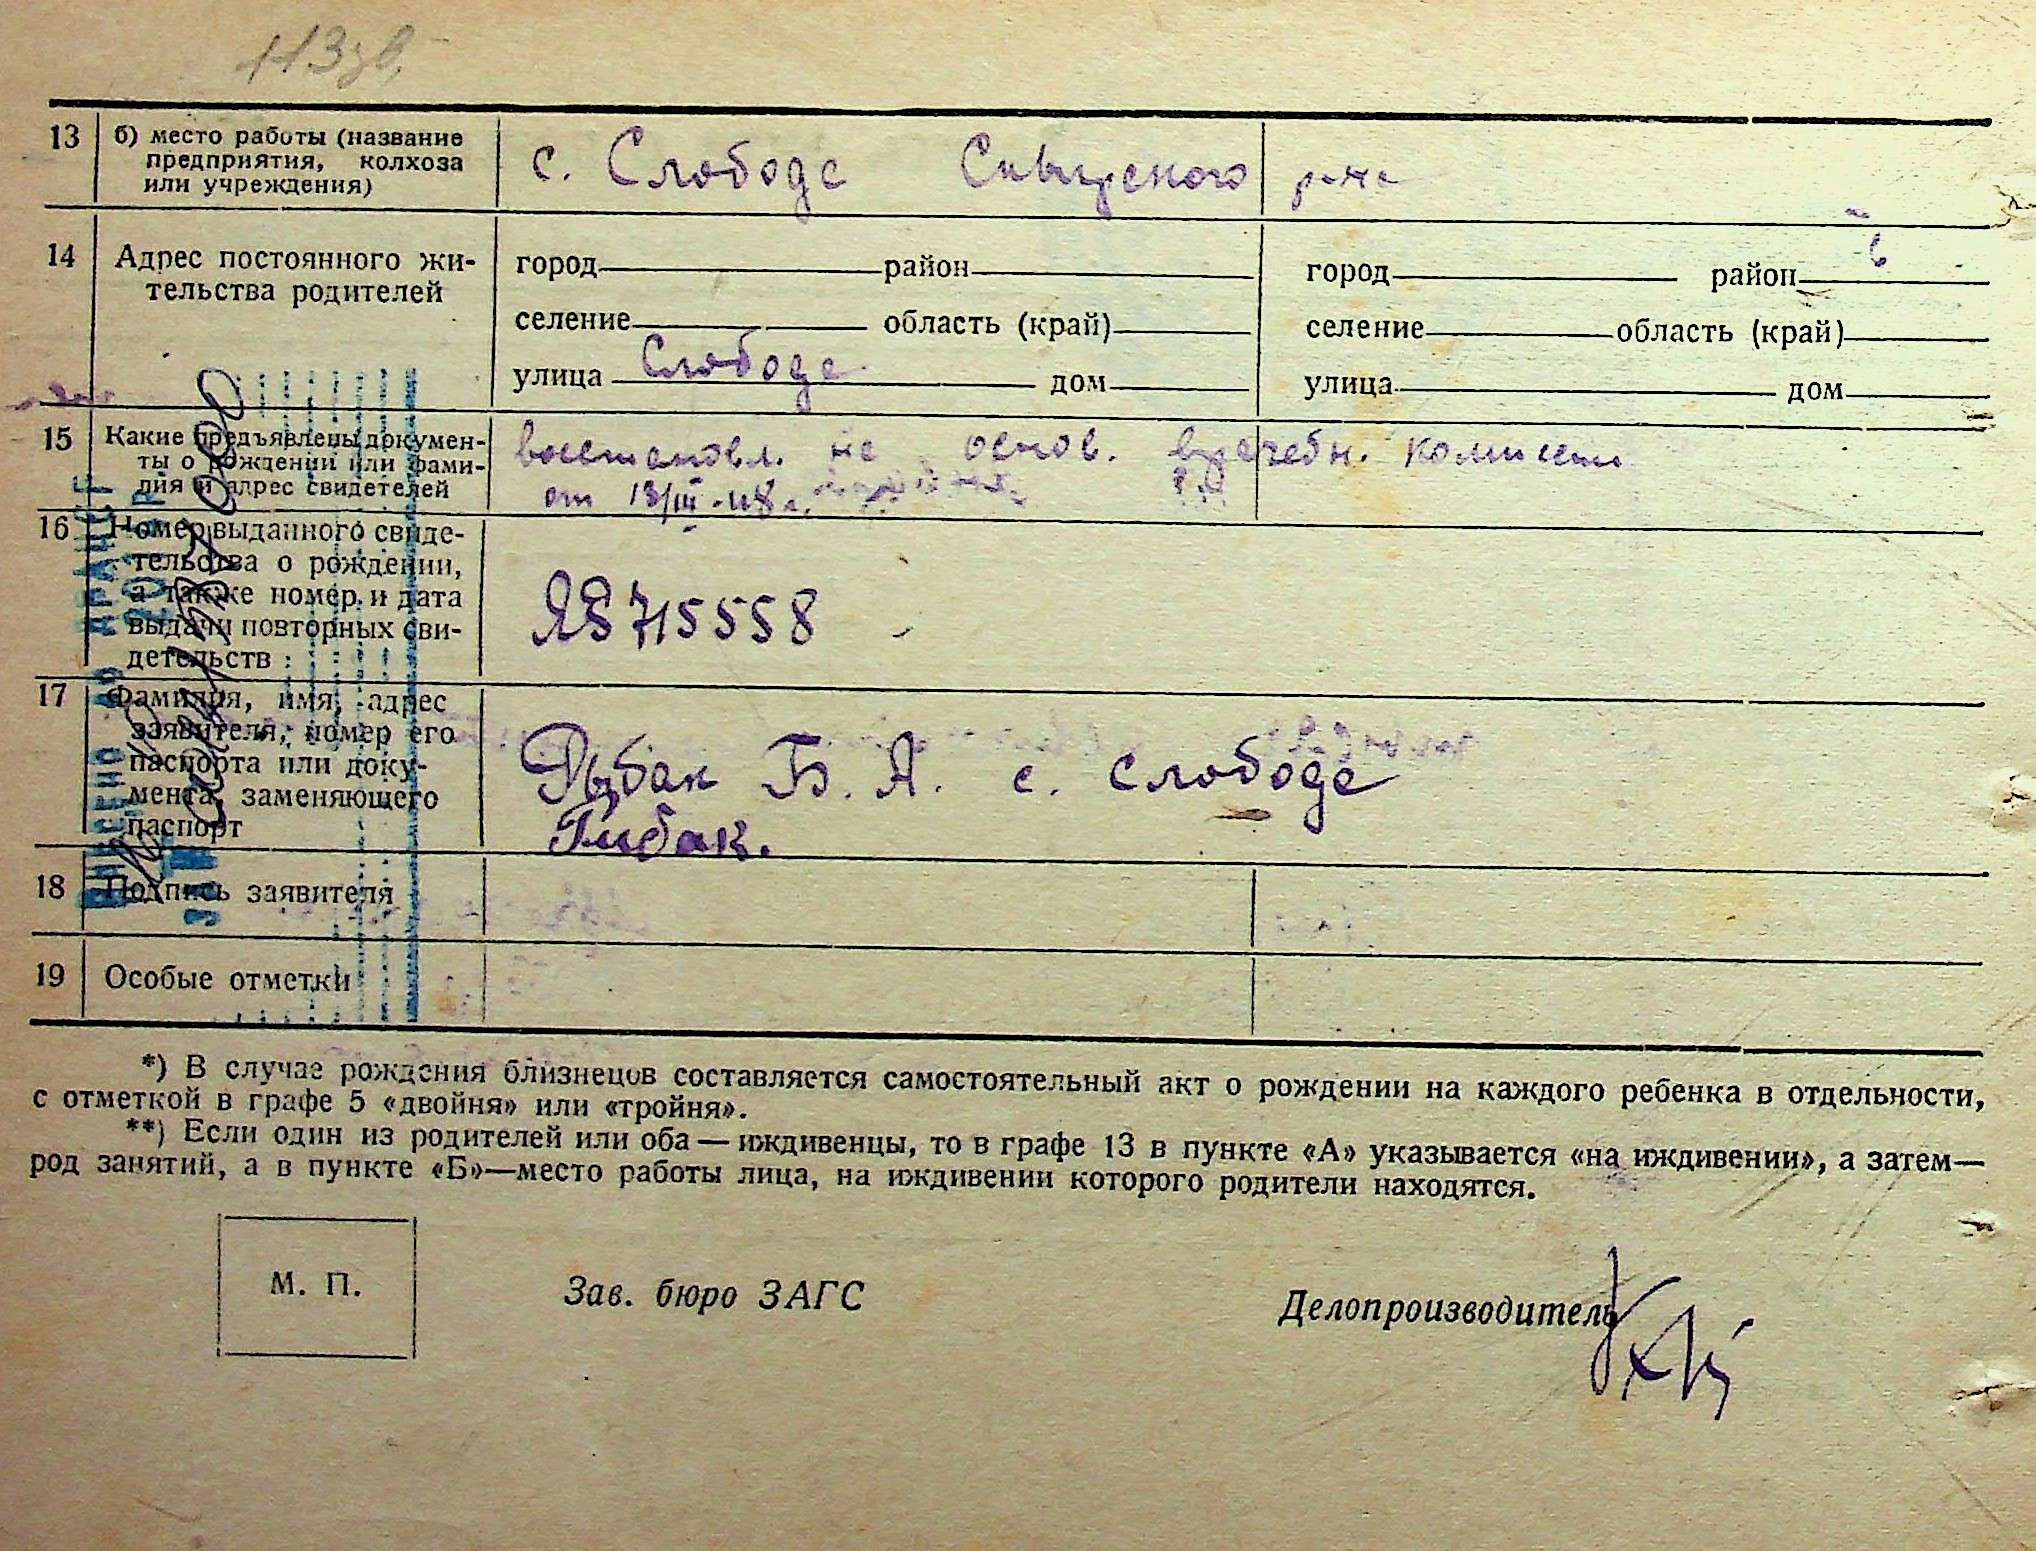 13 б) место работы (название
предприятия, колхоза
или учреждения)
с. Слобода р-на
14 Адрес постоянного жи-
тельства родителей
город район
селение область (край)
улица Слобода дом
город район
селение область (край)
улица дом
15 Какие предъявлены докумен-
ты о рождении или фами-
лия и адрес свидетелей
восстановл. на основ. врачебн. комиссии
от 13/III-48 г.
16 Номер выданного свиде-
тельства о рождении,
а также номер и дата
выдачи повторных сви-
детельств
715558
17 Фамилия, имя, адрес
заявителя, номер его
паспорта или доку-
мента, заменяющего
паспорт
Рыбак Б. А. с. Слобода
Рибак.
18 Подпись заявителя
19 Особые отметки
*) В случае рождения близнецов составляется самостоятельный акт о рождении на каждого ребенка в отдельности,
с отметкой в графе 5 «двойня» или «тройня».
**) Если один из родителей или оба — иждивенцы, то в графе 13 в пункте «А» указывается «на иждивении», а затем—
род занятий, а в пункте «Б»—место работы лица, на иждивении которого родители находятся.
М. П.
Зав. бюро ЗАГС
Делопроизводитель